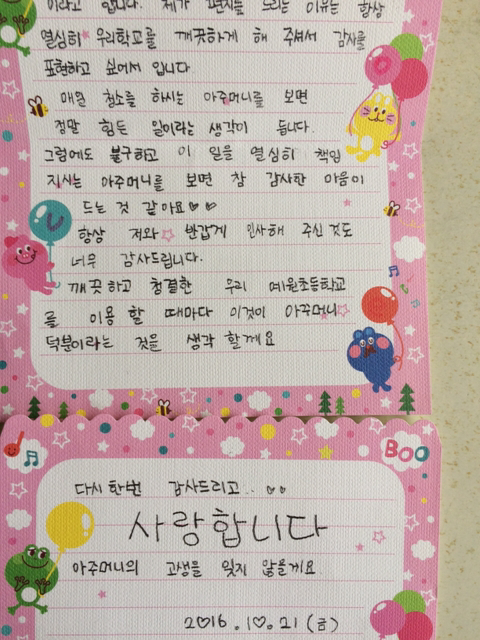 이라고 합니다. 제가 편지를 드리는 이유는 항상
열심히 우리학교를 깨끗하게 해 주셔서 감사를
표현하고 싶어서 입니다
매일 청소를 하시는 아주머니를 보면
정말 힘든 일이라는 생각이 듭니다.
그럼에도 불구하고 이 일을 열심히 책임
지시는 아주머니를 보면 참 감사한 마음이
드는 것 같아요♡♡
항상 저와 반갑게 인사해 주신 것도
너무 감사드립니다.
깨끗하고 청결한 우리 예원초등학교
를 이용 할 때마다 이것이 아주머니
덕분이라는 것을 생각 할께요
BOO
다시 한번 감사드리고.. ♡♡
사랑합니다
아주머니의 고생을 잊지 않을게요
2♡16.1♡.21 (금)